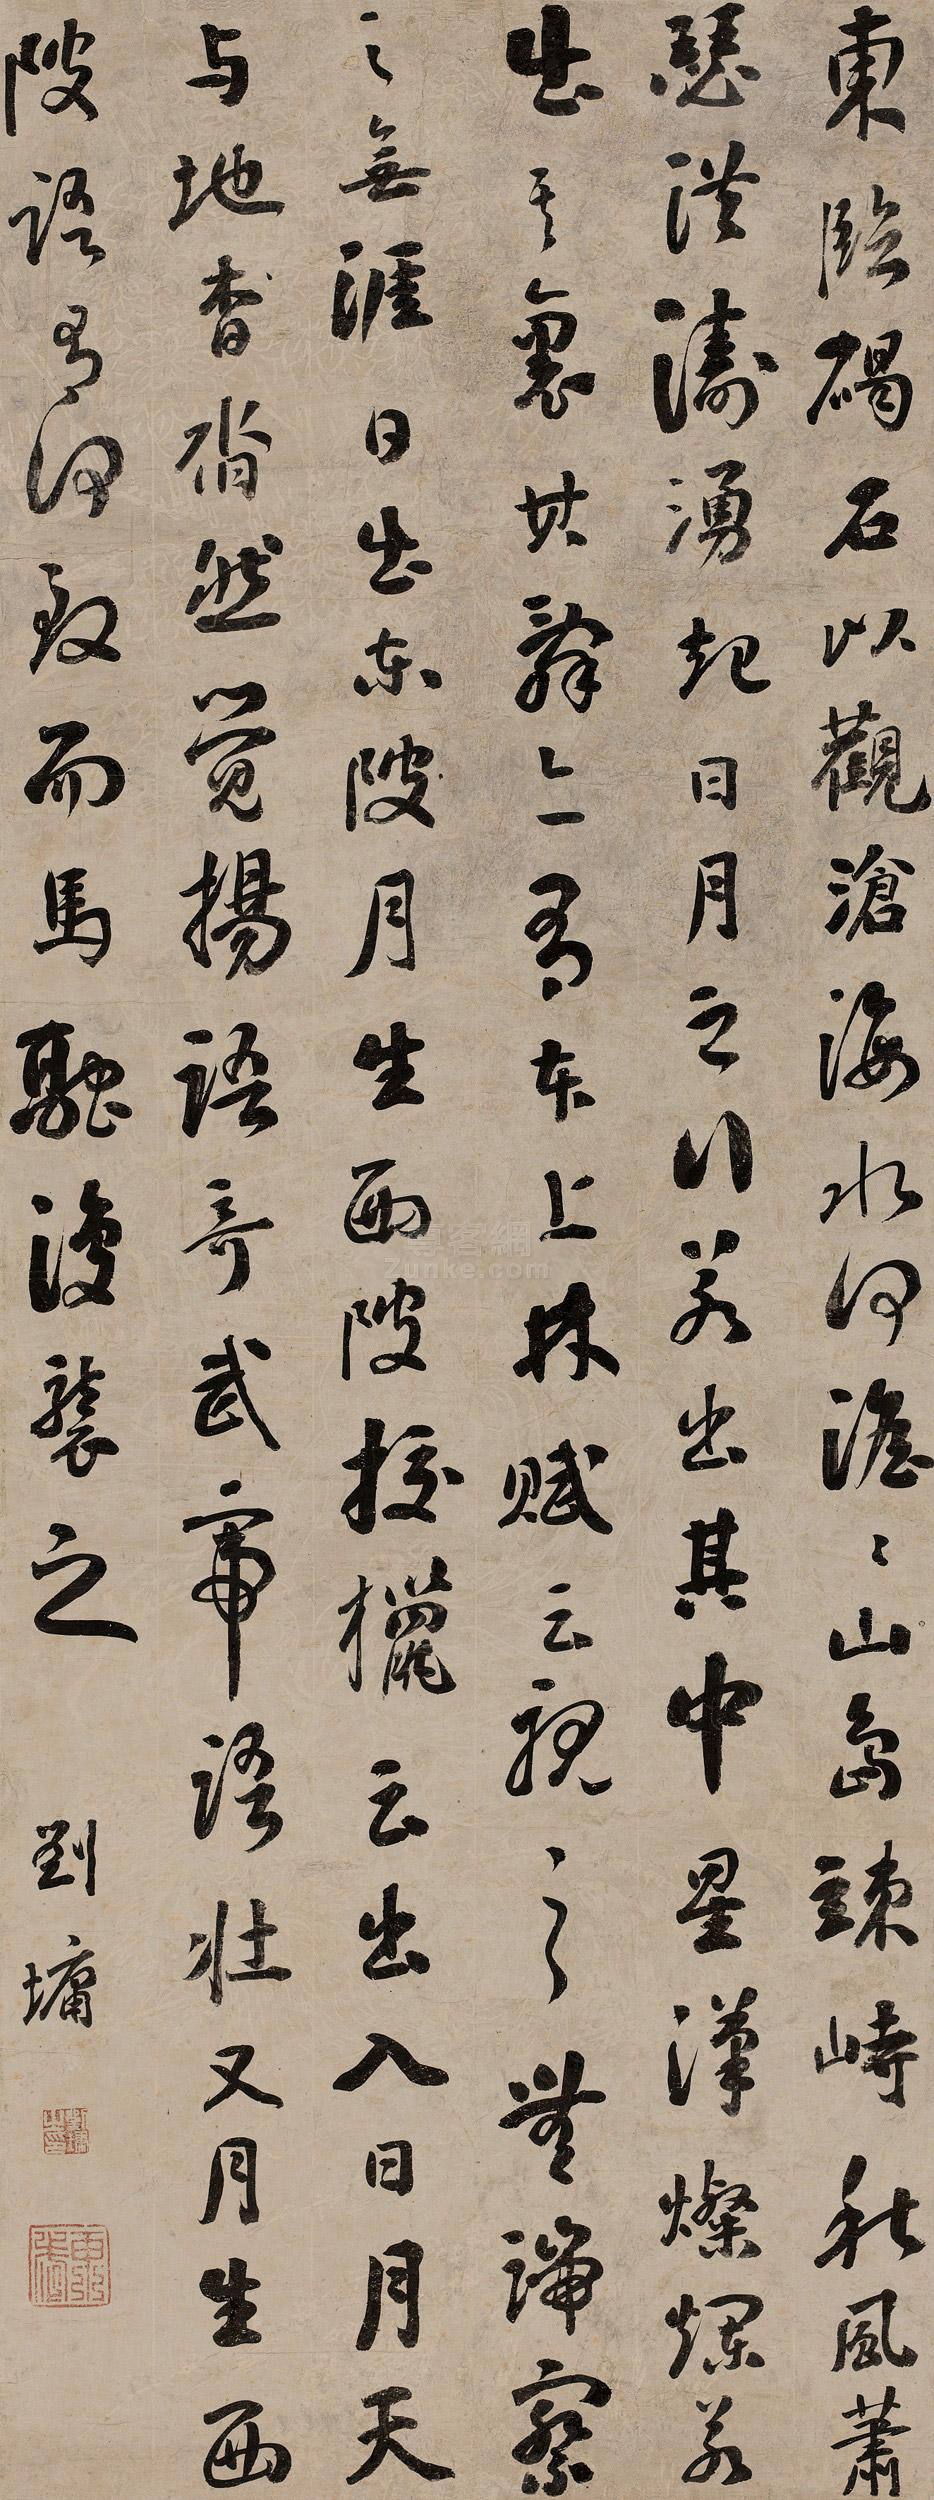 東臨碣石以觀滄海水何澹〻山島竦峙秋風蕭
瑟洪濤湧起日月之行若出其中星漢燦爛若
出其裏其辭亦有本上林賦云視之無端察
之無涯日出東陂月生西陂校獵云出入日月天
与地杳沓然覺揚語奇武帝語壯又月生西
陂語有何致而馬融復襲之
劉墉
尊客網
Zunke.com